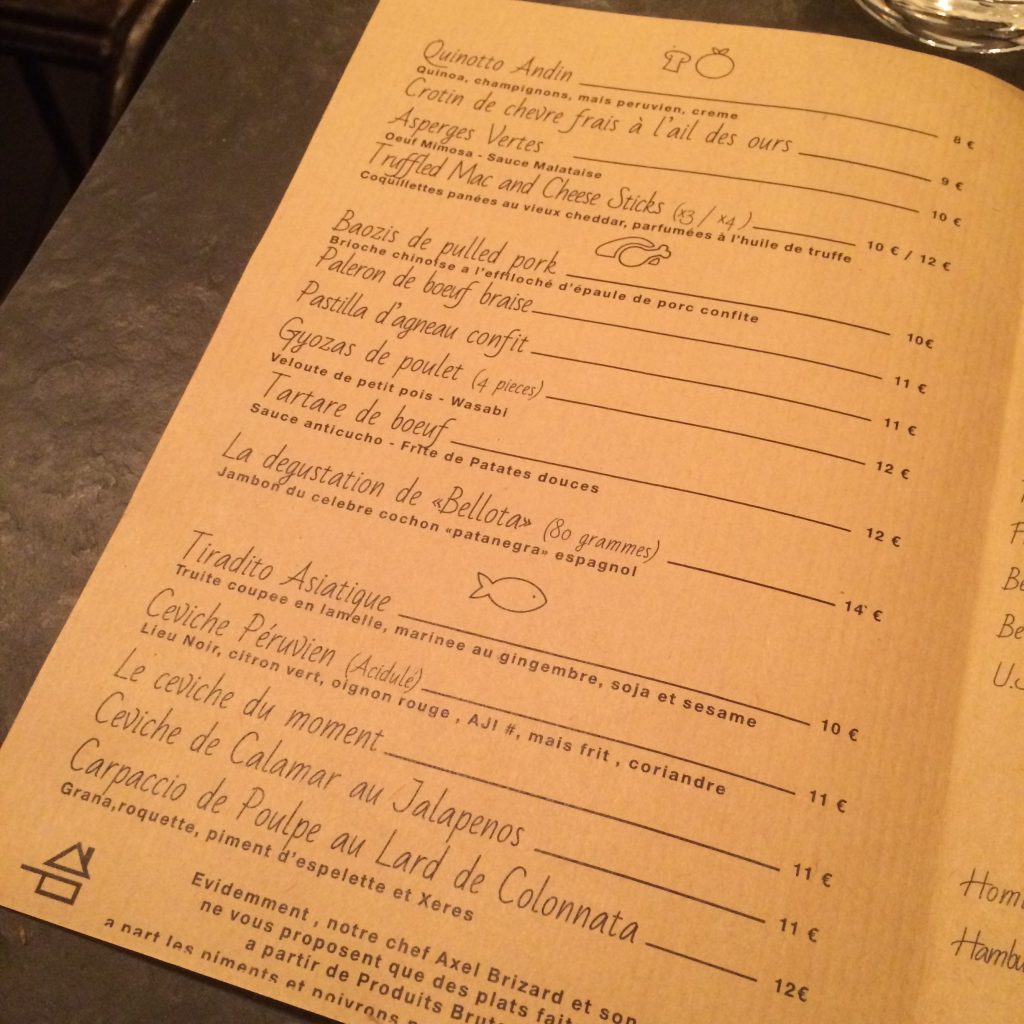 Quinotto Andin 8 €
Quinoa, champignons, mais peruvien, creme
Crotin de chevre frais à l'ail des ours 9 €
Asperges Vertes 10 €
Oeuf Mimosa - Sauce Malataise
Truffled Mac and Cheese Sticks (x3 / x4 ) 10 € / 12 €
Coquillettes panées au vieux cheddar, parfumées à l'huile de truffe
Baozis de pulled pork 10€
Brioche chinoise a l'effiloché d'épaule de porc confite
Paleron de boeuf braise 11 €
Pastilla d'agneau confit 11 €
Gyozas de poulet (4 pieces) 12 €
Veloute de petit pois - Wasabi
Tartare de boeuf 12 €
Sauce anticucho - Frite de Patates douces
La degustation de «Bellota» (80 grammes) 14 €
Jambon du celebre cochon «patanegra» espagnol
Tiradito Asiatique 10 €
Truite coupee en lamelle, marinee au gingembre, soja et sesame
Ceviche Péruvien (Acidulé) 11 €
Lieu Noir, citron vert, oignon rouge , AJI #, mais frit , coriandre
Le ceviche du moment 11 €
Ceviche de Calamar au Jalapenos 11 €
Carpaccio de Poulpe au Lard de Colonnata 12€
Grana,roquette, piment d'espelette et Xeres
Evidemment , notre chef Axel Brizard et son
ne vous proposent que des plats fait
a partir de Produits Brut
a part les piments et poivrons
Be
Be
U.S
Hom
Hambu